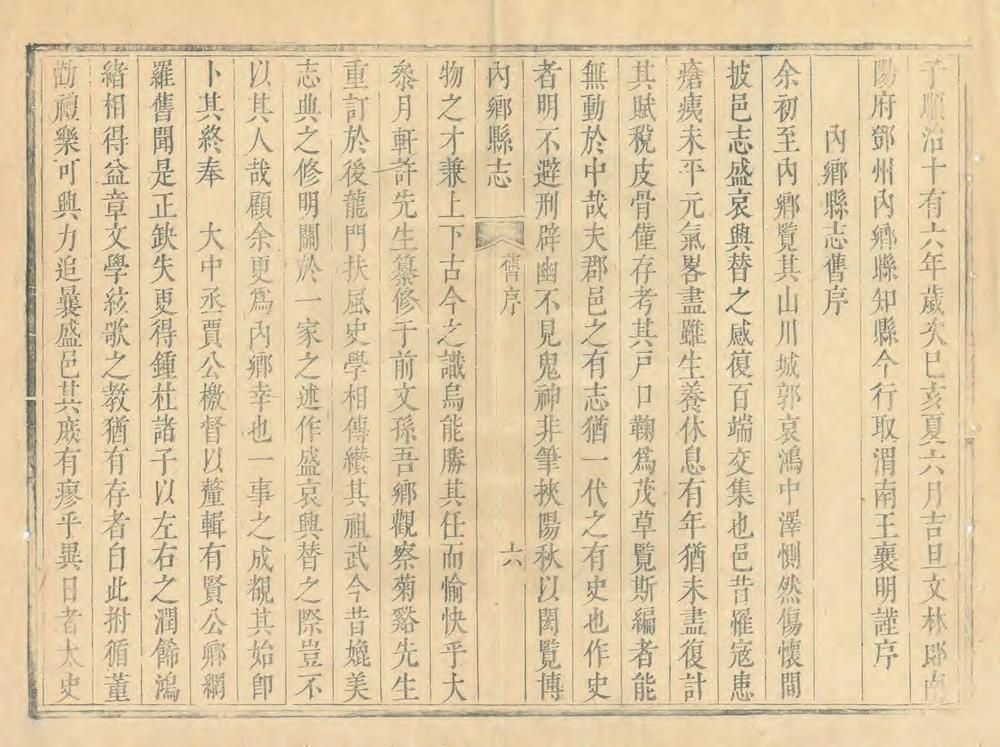 于順治十有六年歲次己亥夏六月吉旦文林郎南
陽府鄧州內鄉縣知縣今行取渭南王襄明謹序
內鄉縣志舊序
余初至內鄉覽其山川城郭哀鴻中澤惻然傷懷間
披邑志盛衰興替之感復百端交集也邑昔罹寇患
瘡痍未平元氣畧盡雖生養休息有年猶未盡復計
其賦稅皮骨僅存考其戸口鞠爲茂草覽斯編者能
無動於中哉夫郡邑之有志猶一代之有史也作史
者明不避刑辟幽不見鬼神非筆挾陽秋以閎覽博
內鄉縣志 舊序 六
物之才兼上下古今之識烏能勝其任而愉快乎大
參月軒許先生纂修于前文孫吾鄉觀察菊谿先生
重訂於後龍門扶風史學相傳纘其祖武今昔媲美
志典之修明關於一家之述作盛衰興替之際豈不
以其人哉顧余更爲內鄉幸也一事之成覩其始卽
卜其終奉 大中丞賈公檄督以釐輯有賢公卿網
羅舊聞是正缺失更得鍾杜諸子以左右之潤飾鴻
緒相得益章文學絃歌之教猶有存者自此拊循董
勸禮樂可興力追曩盛邑其庶有瘳乎異日者太史